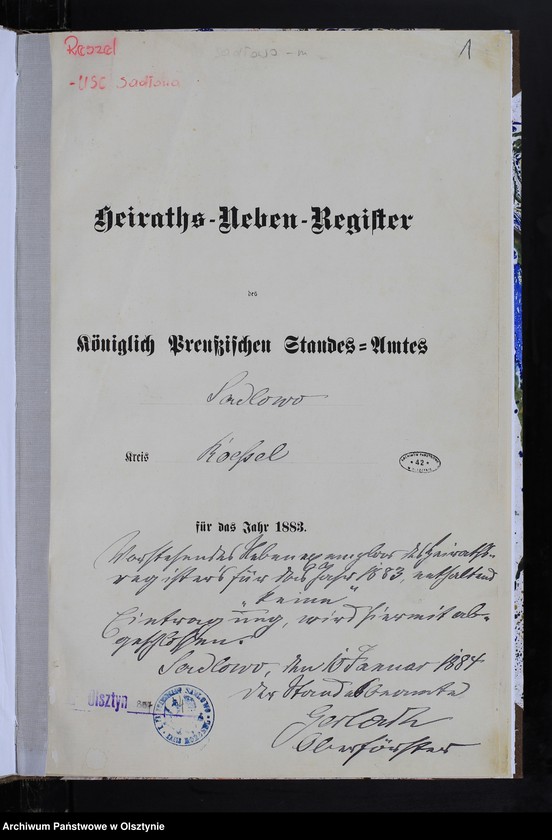 Reszel
1
-USC Sadłowo
Heiraths-Neben-Register
des
Königlich Preußischen Standes=Amtes
Sadlowo
Kreis Roeßel
42
für das Jahr 1883.
Vorstehendes Nebenexemplar des Heiraths-
registers für das Jahr 1883, enthaltend
"keine"
Eintragung, wird hiermit ab-
geschlossen.
Sadlowo, den 10 Januar 1884
Der Standesbeamte
Olsztyn
Gerlach
Oberförster
Archiwum Państwowe w Olsztynie